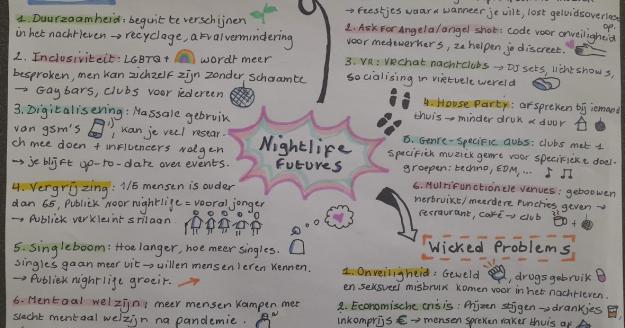 1. Duurzaamheid: begint te verschijnen
in het nachtleven → recyclage, afvalvermindering
2. Inclusiviteit: LGBTQ+ wordt meer
besproken, men kan zichzelf zijn zonder schaamte
→ Gay bars, clubs voor iedereen
3. Digitalisering: Massale gebruik
van gsm's, kan je veel resear-
ch mee doen + influencers volgen
→ je blijft up-to-date over events.
4. Vergrijzing: 1/5 mensen is ouder
dan 65, Publiek voor nightlife = vooral jonger
→ Publiek verkleint stilaan
5. Singleboom: Hoe langer, hoe meer singles.
Singles gaan meer uit → willen mensen leren kennen.
→ Publiek nightlife groeit.
6. Mentaal welzijn: meer mensen kampen met
slecht mentaal welzijn na pandemie.
Nightlife
Futures
→ feestjes waar & wanneer je wilt, lost geluidsoverlast
op.
2. Ask For Angela/angel shot: code voor onveiligheid
voor medewerkers, ze helpen je discreet.
3. VR: VRchat nachtclubs → DJ sets, lichtshows,
socialising in virtuele wereld
4. House Party: afspreken bij iemand
thuis → minder druk & duur
5. Genre-specific clubs: clubs met 1
specifiek muziekgenre voor specifieke doel-
groepen: techno, EDM, ...
6. Multifunctionele venues: gebouwen
herbruikt/meerdere functies geven →
restaurant, café → club
Wicked Problems
1. Onveiligheid: Geweld, drugsgebruik
en seksueel misbruik komen voor in het nachtleven.
2. Economische crisis: Prijzen stijgen → drankjes,
inkomprijs € → mensen spreken